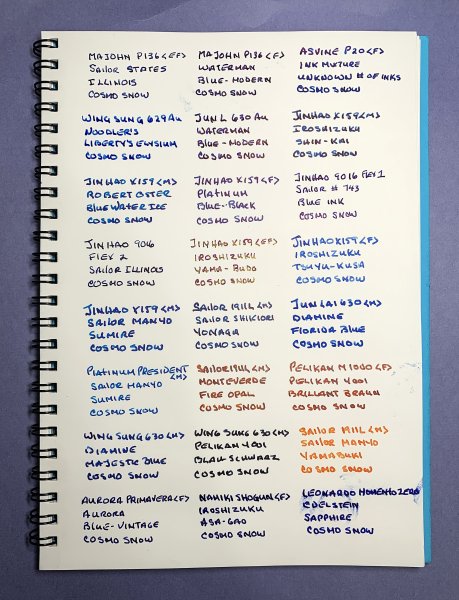 MAJOHN P136 <EF>
SAILOR STATES
ILLINOIS
COSMO SNOW
MAJOHN P136 <F>
WATERMAN
BLUE-MODERN
COSMO SNOW
ASVINE P20 <F>
INK MIXTURE
UNKNOWN # OF INKS
COSMO SNOW
WING SUNG 629 AU
NOODLER'S
LIBERTY'S ELYSIUM
COSMO SNOW
JUN L 630 AU
WATERMAN
BLUE-MODERN
COSMO SNOW
JINHAO X159 <M>
IROSHIZUKU
SHIN-KAI
COSMO SNOW
JINHAO X159 <M>
ROBERT OSTER
BLUE WATER ICE
COSMO SNOW
JINHAO X159 <F>
PLATINUM
BLUE-BLACK
COSMO SNOW
JINHAO 9016 FLEX 1
SAILOR # 743
BLUE INK
COSMO SNOW
JINHAO 9016
FLEX 2
SAILOR ILLINOIS
COSMO SNOW
JINHAO X159 <EF>
IROSHIZUKU
YAMA-BUDO
COSMO SNOW
JINHAO X159 <F>
IROSHIZUKU
TSUYU-KUSA
COSMO SNOW
JINHAO X159 <M>
SAILOR MANYO
SUMIRE
COSMO SNOW
SAILOR 1911L <M>
SAILOR SHIKIORI
YONAGA
COSMO SNOW
JUN LAI 630 <M>
DIAMINE
FLORIDA BLUE
COSMO SNOW
PLATINUM PRESIDENT
<M>
SAILOR MANYO
SUMIRE
COSMO SNOW
SAILOR 1911L <M>
MONTEVERDE
FIRE OPAL
COSMO SNOW
PELIKAN M1000 <F>
PELIKAN 4001
BRILLIANT BRAUN
COSMO SNOW
WING SUNG 630 <M>
DIAMINE
MAJESTIC BLUE
COSMO SNOW
WING SUNG 630 <M>
PELIKAN 4001
BLAU SCHWARZ
COSMO SNOW
SAILOR 1911L <M>
SAILOR MANYO
YAMABUKI
COSMO SNOW
AURORA PRIMAVERA <F>
AURORA
BLUE-VINTAGE
COSMO SNOW
NAMIKI SHOGUN <F>
IROSHIZUKU
ASA-GAO
COSMO SNOW
LEONARDO MOMENTO ZERO
EDELSTEIN
SAPPHIRE
COSMO SNOW